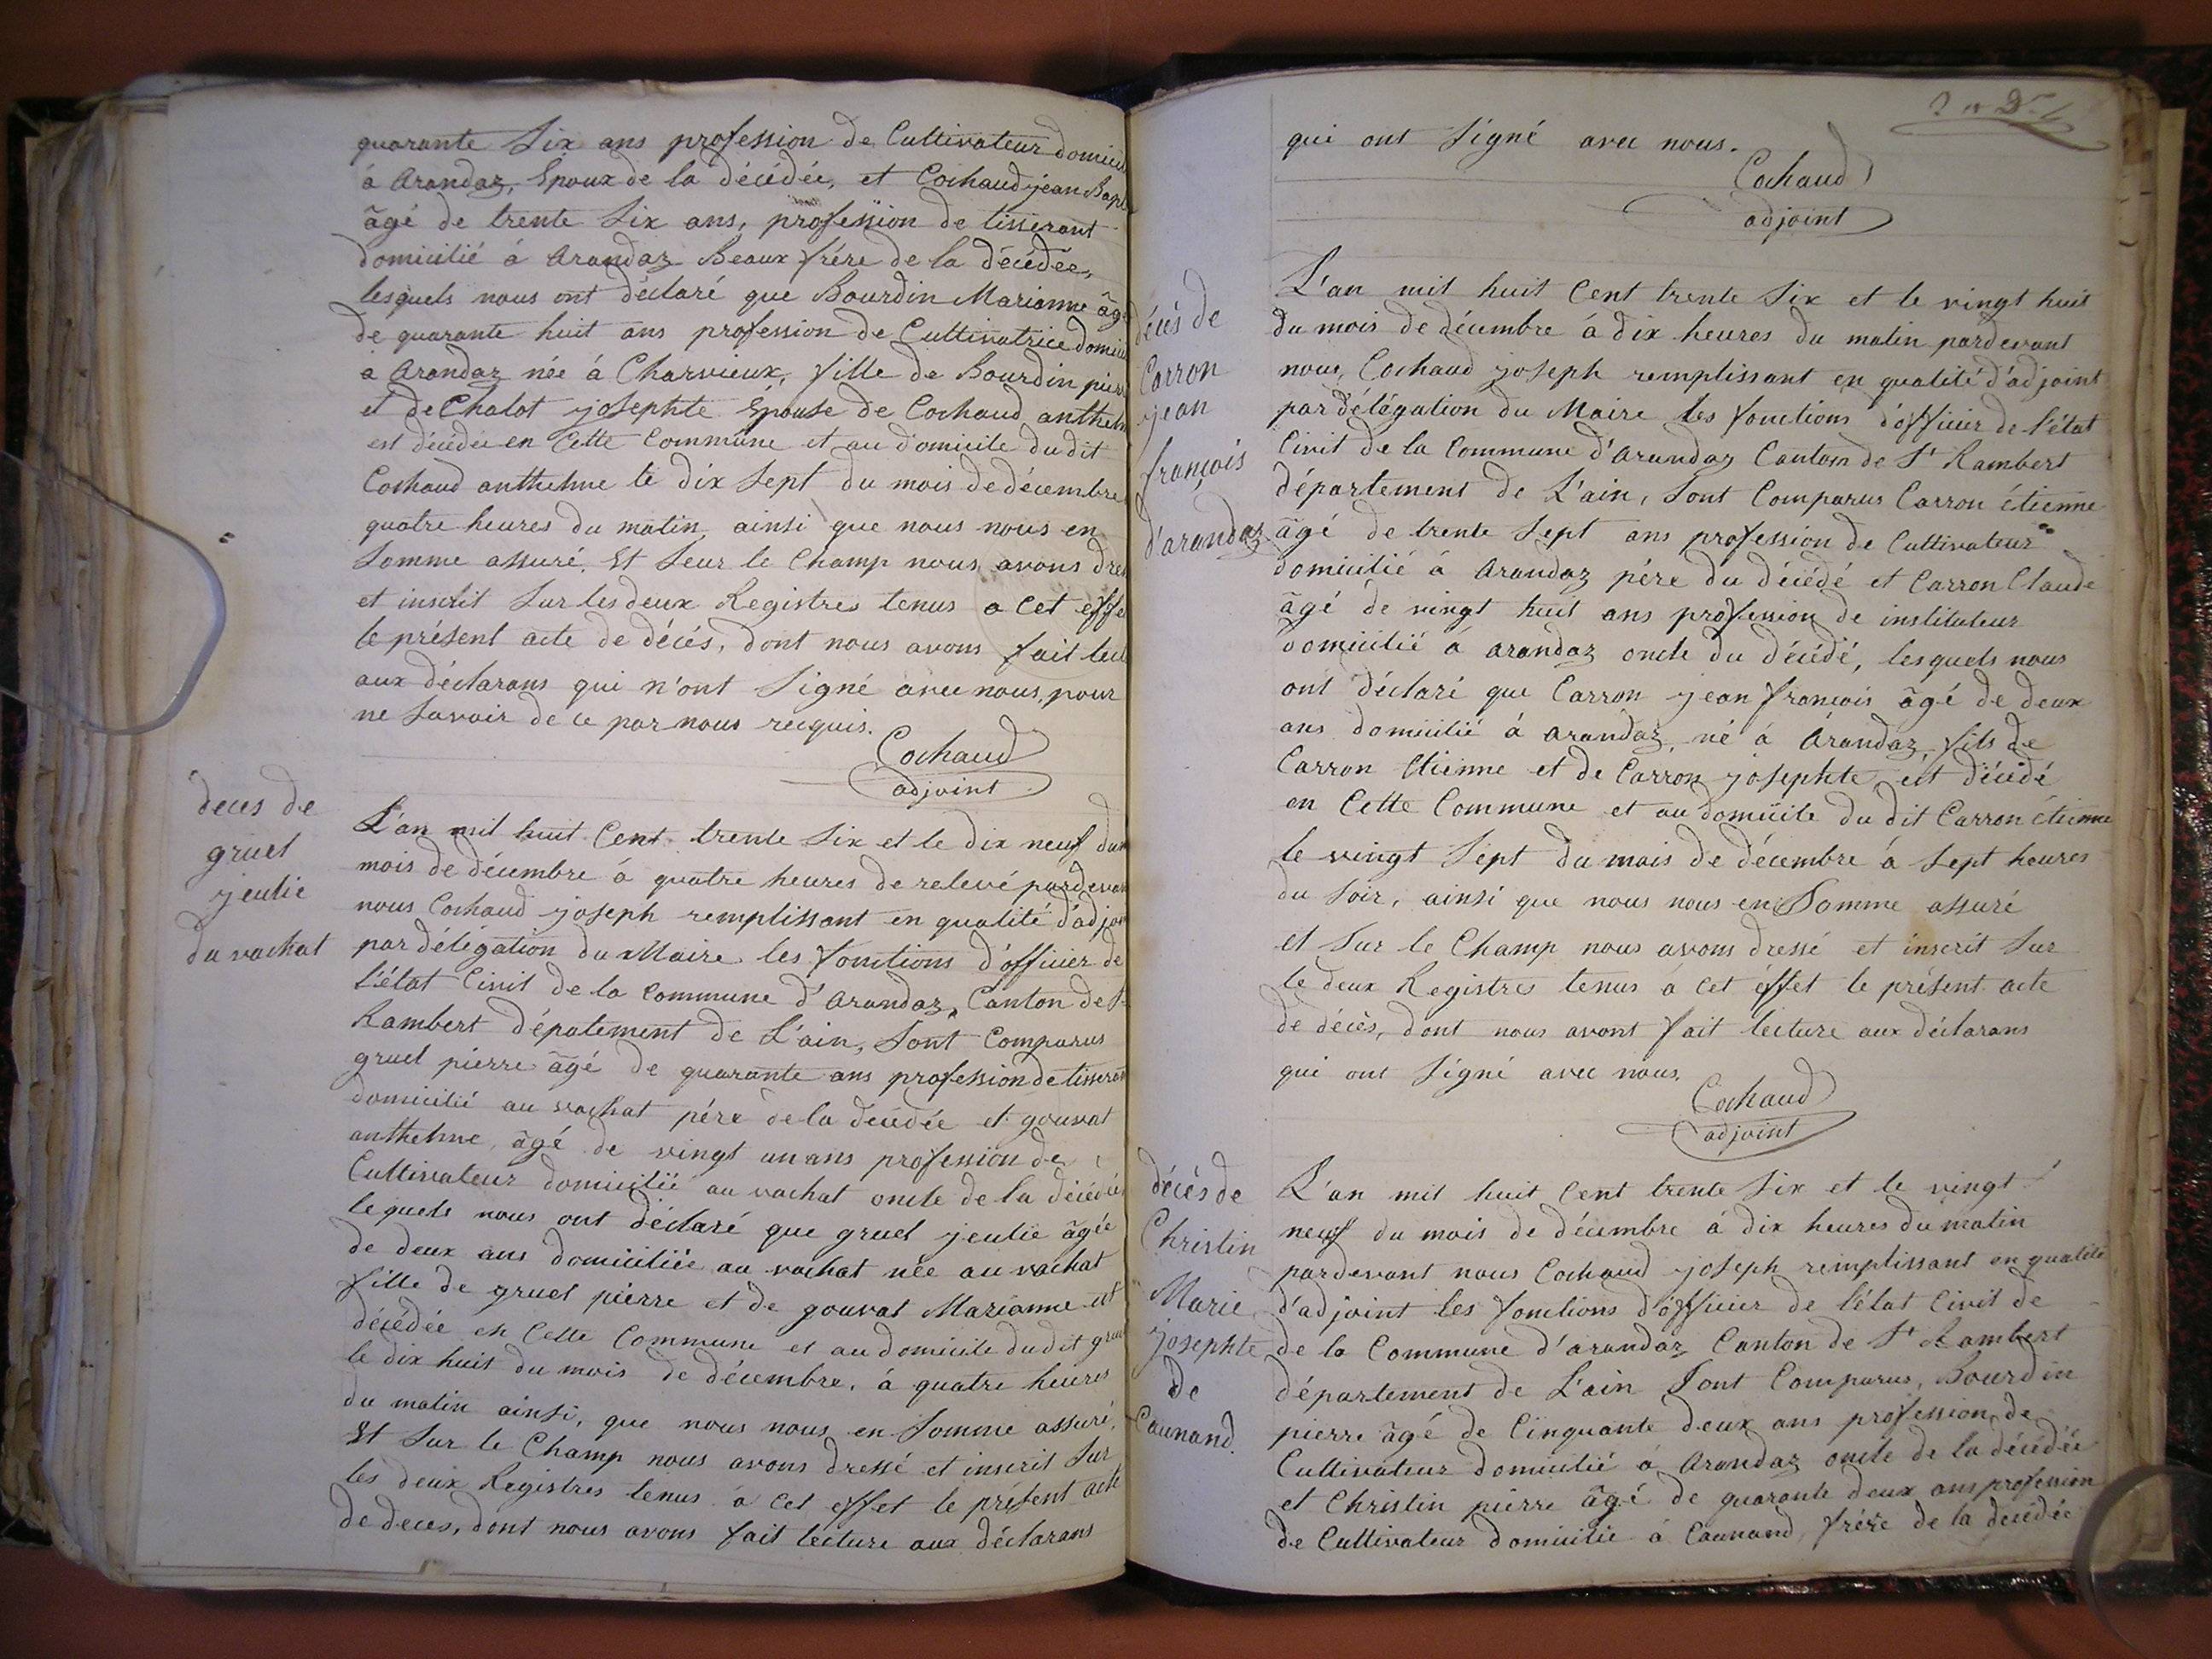 quarante Six ans profession de Cultivateur domicil
à Arandaz, Epoux de la décédée, et Cochaud jean Bapt
âgé de trente Six ans, profession de tisserant
domicilié à Arandaz Beaux frére de la décédée,
lesquels nous ont déclaré que Bourdin Marianne âgé
de quarante huit ans profession de Cultivatrice domici
à Arandaz née à Charvieux, fille de Bourdin pierr
et de Chalot josephte Epouse de Cochaud anthelm
est décédée en Cette Commune et au domicile du dit
Cochaud anthelme le dix Sept du mois de décembre
quatre heures du matin, ainsi que nous nous en
Somme assuré. Et Seur le Champ nous avons dres
et inscrit Sur les deux Registres tenus a Cet effe
le présent acte de décés, dont nous avons fait lect
aux déclarans qui n'ont Signé avec nous, pour
ne Savoir de ce par nous recquis.
Cochaud
adjoint
deces de
gruel
jeulie
du vachat
L'an mil huit Cent trente Six et le dix neuf du
mois de décembre à quatre heures de relevé pardevan
nous Cochaud joseph remplissant en qualité d'adjoi
par délégation du Maire les fonctions d'officier de
l'état Civil de la Commune d'Arandaz, Canton de St
Rambert dépatement de L'ain, Sont Comparus
gruel pierre âgé de quarante ans profession de tisseran
domicilié au vachat pére de la décédée et gouvat
anthelme, âgé de vingt un ans profession de
Cultivateur domicilié au vachat oncle de la décédée
lequels nous ont déclaré que gruel jeulie âgée
de deux ans domiciliée au vachat née au vachat
fille de gruel pierre et de gouvat Marianne est
décédée en Cette Commune et au domicile du dit gruel
le dix huit du mois de décembre, à quatre heures
du matin ainsi, que nous nous en Somme assuré.
Et Sur le Champ nous avons dressé et inscrit Sur
les deux Registres tenus à Cet effet le présent acte
de deces, dont nous avons fait lecture aux déclarans
qui ont Signé avec nous.
Cochaud
adjoint
décés de
Carron
jean
françois
d'arandaz
L'an mil huit Cent trente Six et le vingt huit
du mois de décembre à dix heures du matin pardevant
nous, Cochaud joseph remplissant en qualité d'adjoint
par délégation du Maire les fonctions d'officier de l'état
Civil de la Commune d'Arandaz Canton de St Rambert
département de L'ain, Sont Comparus Carron étienne
âgé de trente Sept ans profession de Cultivateur
domicilié à Arandaz pére du décédé et Carron Claude
âgé de vingt huit ans profession de instituteur
domicilié à arandaz oncle du décédé, lesquels nous
ont déclaré que Carron jean françois âgé de deux
ans domicilié à arandaz, né à Arandaz, fils de
Carron Etienne et de Carron josephte est décédé
en Cette Commune et au domicile du dit Carron étienne
le vingt Sept du mois de décembre à Sept heures
du Soir, ainsi que nous nous en Somme assuré
et Sur le Champ nous avons dressé et inscrit Sur
le deux Registres tenus à Cet éffet le présent acte
de décès, dont nous avont fait lecture aux déclarans
qui ont Signé avec nous.
Cochaud
adjoint
décés de
Christin
Marie
josephte
de
Caunand.
L'an mil huit Cent trente Six et le vingt
neuf du mois de décembre à dix heures du matin
pardevant nous Cochaud joseph remplissant en qualité
d'adjoint les fonctions d'officier de l'état Civil de
de la Commune d'arandaz Canton de St Rambert
département de L'ain Sont Comparus, Bourdin
pierre âgé de Cinquante deux ans profession de
Cultivateur domicilié à Arandaz oncle de la décédée
et Christin pierre âgé de quarante deux ans profession
de Cultivateur domicilié à Caunand, frére de la décédée